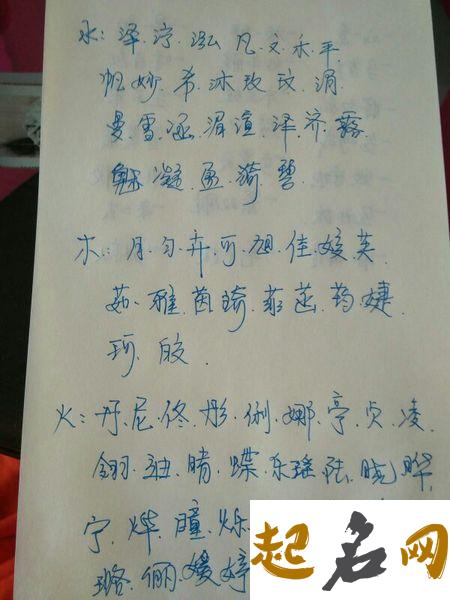 水: 泽.泞.泓.凡.文.禾.平.
帆.妙.希.沐.玫.玟.湄.
曼.雪.涵.渲.泽.济.露.
魅.凝.盈.漪.碧.
木: 月.匀.卉.可.旭.佳.媛.芙
茹.雅.茵.琦.菲.茜.药.婕.
珂.皎.
火: 丹.尼.佟.彤.俐.娜.亭.贞.凌.
翎.迪.晴.蝶.东.瑶.陆.晓.晔.
宁.烨.瞳.烁
璐.俪.嫒.婷
起名网